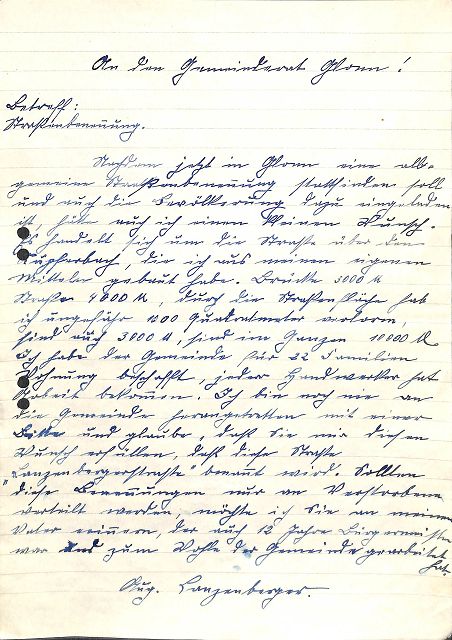 An den Gemeinderat Glonn!
Betreff:
Straßenbenennung.
Nachdem jetzt in Glonn eine all-
gemeine Straßenbenennung stattfinden soll
und auch die Bevölkerung dazu eingeladen
ist, hätte auch ich einen kleinen Wunsch.
Es handelt sich um die Straße über den
Kupferbach, die ich aus meinen eigenen
Mitteln gebaut habe. Brücke 3000 M
Straße 4000 M, durch die Straßenfläche hab
ich ungefähr 1200 Quadratmeter verloren,
sind auch 3000 M, sind im Ganzen 10000 M.
Ich habe der Gemeinde für 22 Familien
Wohnung beschafft, jeder Handwerker hat
Arbeit bekommen. Ich bin noch nie an
die Gemeinde herangetretten mit einer
Bitte und glaube, daß Sie mir diesen
Wunsch erfüllen, daß diese Straße
"Lanzenbergerstraße" benannt wird. Sollten
diese Benennungen nur an Verstorbene
verteilt werden, möchte ich Sie an meinen
Vater erinnern, der auch 12 Jahre Bürgermeister
war und zum Wohle der Gemeinde gearbeitet
hat.
Aug. Lanzenberger.